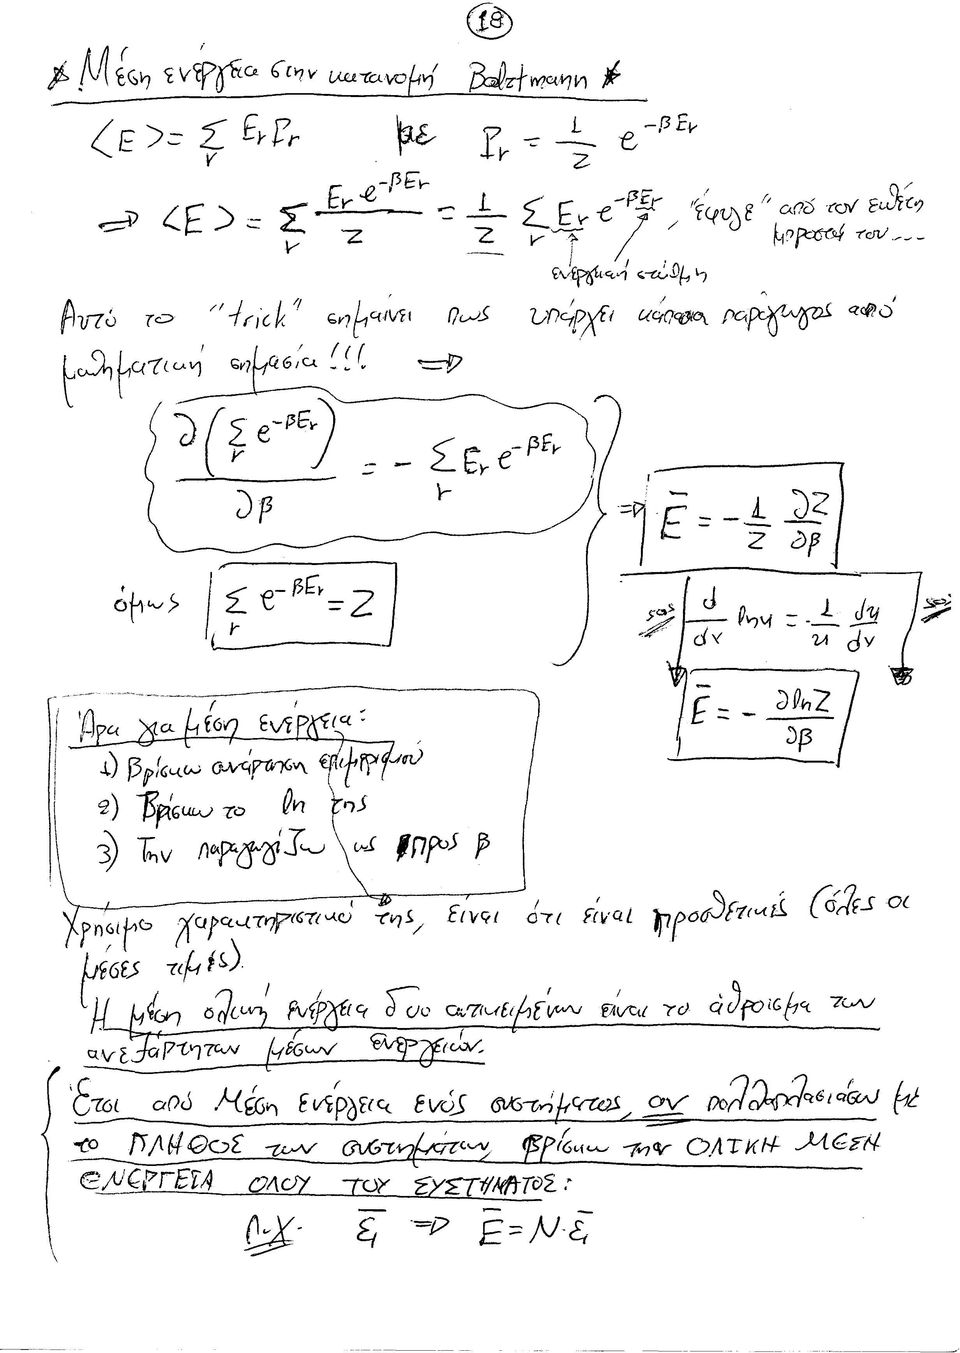 18
* Μέση ενέργεια στην κατανομή Boltzmann *
<E> = Σ_r E_r P_r με P_r = 1/Z e^{-βE_r}
⇒ <E> = Σ_r E_r e^{-βE_r} / Z = 1/Z Σ_r E_r e^{-βE_r}, "έφυγε" από τον εκθέτη
μπροστά του...
ενεργειακή στάθμη
Αυτό το "trick" σημαίνει πως υπάρχει κάποια παράγωγος από
μαθηματική σημασία!!! ⇒
∂(Σ_r e^{-βE_r}) / ∂β = - Σ_r E_r e^{-βE_r}
⇒ Ē = - 1/Z ∂Z/∂β
όμως Σ_r e^{-βE_r} = Z
sos d/dx ln u = 1/u du/dx sos
Ē = - ∂lnZ/∂β
Άρα για μέση ενέργεια:
1) Βρίσκω συνάρτηση επιμερισμού
2) Βρίσκω το ln της
3) Την παραγωγίζω ως προς β
Χρήσιμο χαρακτηριστικό της, είναι ότι είναι προσθετικές (όλες οι
μέσες τιμές).
Η μέση ολική ενέργεια δυο αντικειμένων είναι το άθροισμα των
ανεξάρτητων μέσων ενεργειών.
Έτσι από Μέση Ενέργεια ενός συστήματος, αν πολλαπλασιάσω με
το ΠΛΗΘΟΣ των συστημάτων, βρίσκω την ΟΛΙΚΗ ΜΕΣΗ
ΕΝΕΡΓΕΙΑ ΟΛΟΥ ΤΟΥ ΣΥΣΤΗΜΑΤΟΣ:
π.χ. ε̄₁ ⇒ Ē = N·ε̄₁